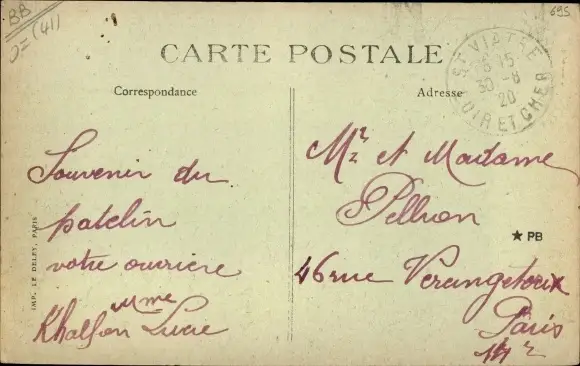 BB
(41)
695
CARTE POSTALE
Correspondance
Adresse
ST VIATRE
8 15
30 -8
20
LOIR ET CHER
Souvenir du
patelin
votre ouvrière
Mme
Khalfon Lucie
Mr et Madame
Pellion
46 rue Vercingetorix
Paris
14e
★ PB
IMP. LE DELEY, PARIS